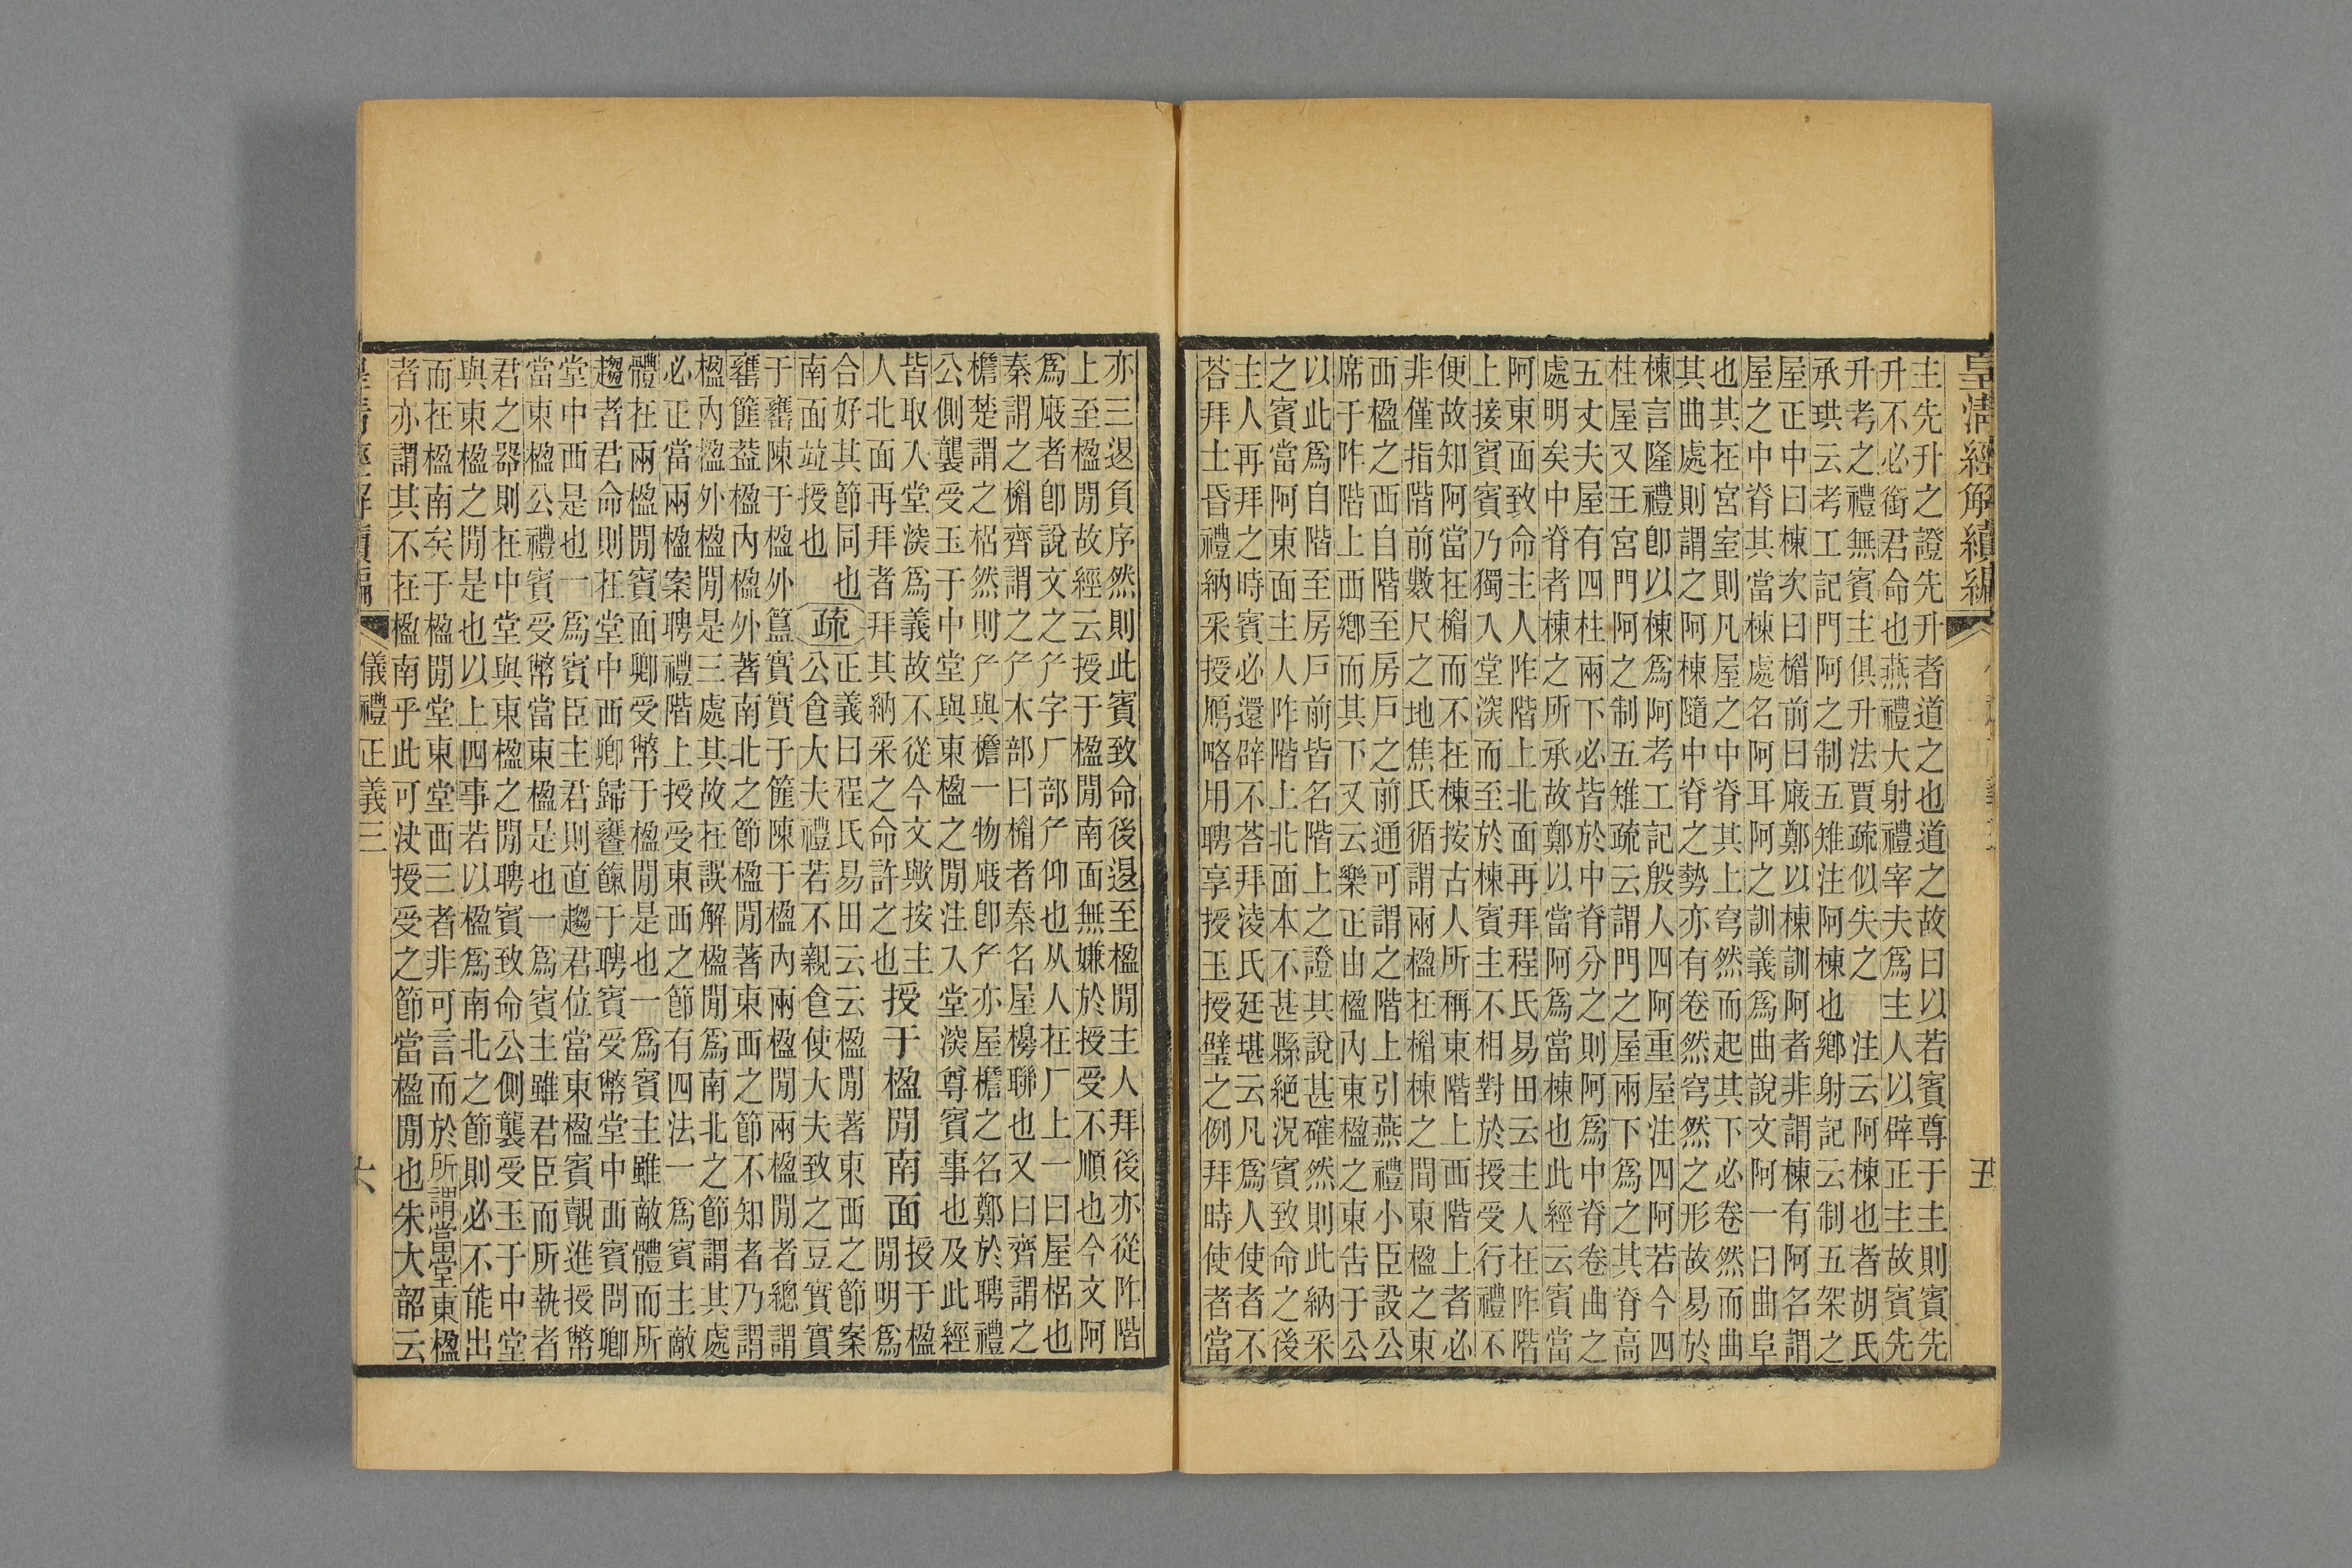 皇清經解續編
五
主先升之證先升者道之也道之故曰以若賓尊于主則賓先
升不必銜君命也燕禮大射禮宰夫爲主人以辟正主故賓先
升考之禮無賓主俱升法賈疏似失之　注云阿棟也者胡氏
承珙云考工記門阿之制五雉注阿棟也鄉射記云制五架之
屋正中曰棟次曰楣前曰庪鄭以棟訓阿者非謂棟有阿名謂
屋之中脊其當棟處名阿耳阿之訓義爲曲說文阿一曰曲阜
也其在宮室則凡屋之中脊其上穹然而起其下必卷然而曲
其曲處則謂之阿棟隨中脊之勢亦有卷然穹然之形故易於
棟言隆禮卽以棟爲阿考工記殷人四阿重屋注四阿若今四
柱屋又王宮門阿之制五雉疏云謂門之屋兩下爲之其脊高
五丈夫屋有四柱兩下必皆於中脊分之則阿爲中脊卷曲之
處明矣中脊者棟之所承故鄭以當阿爲當棟也此經云賓當
阿東面致命主人阼階上北面再拜程氏易田云主人在阼階
上接賓賓乃獨入堂深而至於棟賓主不相對於授受行禮不
便故知阿當在楣而不在棟按古人所稱東階上西階上者必
非僅指階前數尺之地焦氏循謂兩楹在楣棟之間東楹之東
西楹之西自階至房戶之前通可謂之階上引燕禮小臣設公
席于阼階上西鄉而其下又云樂正由楹內東楹之東告于公
以此爲自階至房戶前皆名階上之證其說甚確然則此納采
之賓當阿東面主人阼階上北面本不甚縣絕況賓致命之後
主人再拜之時賓必還辟不荅拜淩氏廷堪云凡爲人使者不
荅拜士昏禮納采授鴈略用聘享授玉授璧之例拜時使者當
亦三退負序然則此賓致命後退至楹閒主人拜後亦從阼階
上至楹閒故經云授于楹閒南面無嫌於授受不順也今文阿
爲庪者卽說文之厃字厂部厃仰也从人在厂上一曰屋梠也
秦謂之楣齊謂之厃木部曰楣者秦名屋櫋聯也又曰齊謂之
檐楚謂之梠然則厃與檐一物庪卽厃亦屋檐之名鄭於聘禮
公側襲受玉于中堂與東楹之閒注入堂深尊賓事也及此經
皆取入堂深爲義故不從今文歟按主
人北面再拜者拜其納采之命許之也
授于楹閒南面
授于楹
閒明爲
合好其節同也
南面竝授也
疏
正義曰程氏易田云云楹閒著東西之節案
公食大夫禮若不親食使大夫致之豆實實
于罋陳于楹外簋實實于篚陳于楹內兩楹閒兩楹閒者總謂
罋篚葢楹內楹外著南北之節楹閒著東西之節不知者乃謂
楹內楹外楹閒是三處其故在誤解楹閒爲南北之節謂其處
必正當兩楹案聘禮階上授受東西之節有四法一爲賓主敵
體在兩楹閒賓面卿受幣于楹閒是也一爲賓主雖敵體而所
趨者君命則在堂中西卿歸饔餼于聘賓受幣堂中西賓問卿
堂中西是也一爲賓臣主君則直趨君位當東楹賓覿進授幣
當東楹公禮賓受幣當東楹是也一爲賓主雖君臣而所執者
君之器則在中堂與東楹之閒聘賓致命公側襲受玉于中堂
與東楹之閒是也以上四事若以楹爲南北之節則必不能出
而在楹南矣于楹閒堂東堂西三者非可言而於所謂當堂東楹
者亦謂其不在楹南乎此可決授受之節當楹閒也朱大韶云
儀禮正義三
六